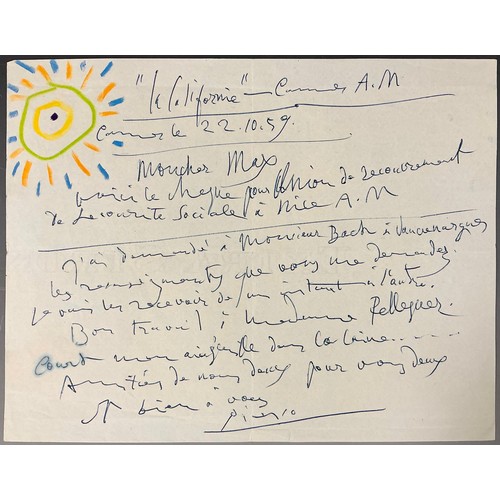 "la Californie" — Cannes A.M
Cannes le 22.10.59.
Mon cher Max
voici le chèque pour Union de recouvrement
de Sécurité Sociale à Nice A.M
J'ai demandé à Monsieur Bach à Vauvenargues
les renseignements que vous me demandez.
Je vais les recevoir de un instant à l'autre.
Bon travail à Madame Pellequer.
Court mon aiguille dans la laine......
Amitiés de nous deux pour vous deux
et bien à vous
Picasso